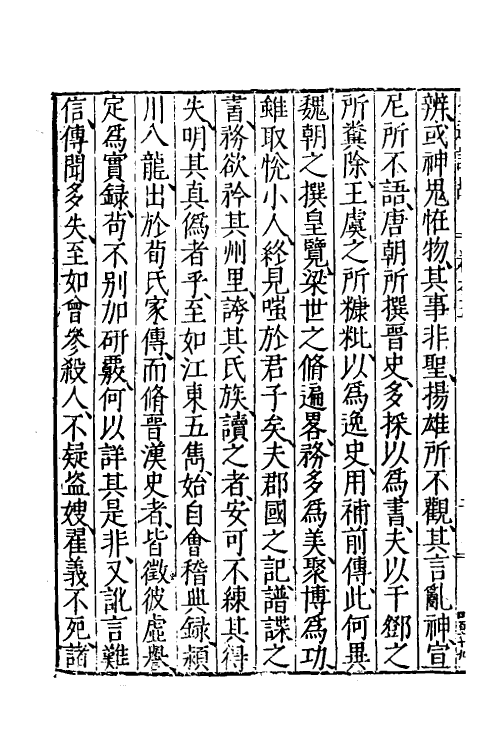 辨或神鬼恠物其事非聖揚雄所不觀其言亂神宣
尼所不語唐朝所撰晉史多採以爲書夫以干鄧之
所糞除王虞之所糠粃以爲逸史用補前傳此何異
魏朝之撰皇覽梁世之脩遍畧務多爲美聚博爲功
雖取悅小人終見嗤於君子矣夫郡國之記譜諜之
書務欲矜其州里誇其氏族讀之者安可不練其得
失明其真僞者乎至如江東五雋始自會稽典録潁
川八龍出於荀氏家傳而脩晉漢史者皆徵彼虛譽
定爲實録苟不别加研覈何以詳其是非又訛言難
信傳聞多失至如曾參殺人不疑盗嫂翟義不死諸